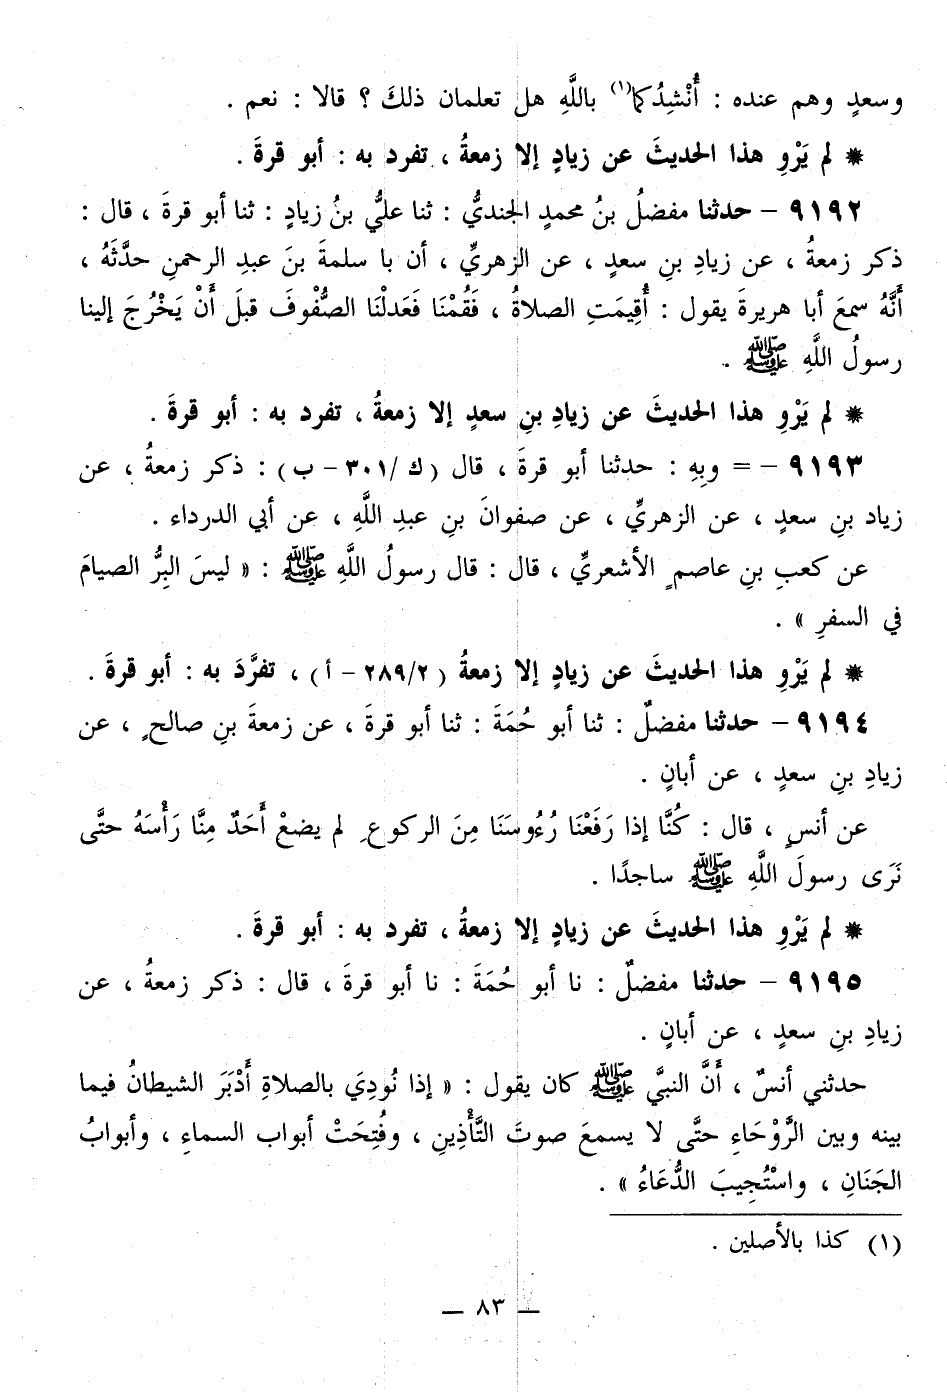 وسعدٍ وهم عنده : أُنْشِدُكما(١) باللَّهِ هل تعلمان ذلكَ ؟ قالا : نعم .
* لم يَرْوِ هذا الحديثَ عن زيادٍ إلا زمعةُ ، تفرد به : أبو قرةَ .
٩١٩٢ – حدثنا مفضلُ بنُ محمدٍ الجنديُّ : ثنا عليُّ بنُ زيادٍ : ثنا أبو قرةَ ، قال :
ذكر زمعةُ ، عن زيادِ بنِ سعدٍ ، عن الزهريِّ ، أن با سلمةَ بنَ عبدِ الرحمنِ حدَّثَهُ ،
أنَّهُ سمعَ أبا هريرةَ يقول : أُقِيمَتِ الصلاةُ ، فَقُمْنَا فَعَدلْنَا الصُّفْوفَ قبلَ أَنْ يَخْرُجَ إلينا
رسولُ اللَّهِ ﷺ .
* لم يَرْوِ هذا الحديثَ عن زيادِ بنِ سعدٍ إلا زمعةُ ، تفرد به : أبو قرةَ .
٩١٩٣ – = وبِهِ : حدثنا أبو قرةَ ، قال (ك /٣٠١ – ب) : ذكر زمعةُ ، عن
زياد بنِ سعدٍ ، عن الزهريِّ ، عن صفوانَ بنِ عبدِ اللَّهِ ، عن أبي الدرداء .
عن كعبِ بنِ عاصمٍ الأشعريِّ ، قال : قال رسولُ اللَّهِ ﷺ : « ليسَ البِرُّ الصيامَ
في السفرِ » .
* لم يَرْوِ هذا الحديثَ عن زيادٍ إلا زمعةُ (٢٨٩/٢ – أ) ، تفرَّدَ به : أبو قرةَ .
٩١٩٤ – حدثنا مفضلٌ : ثنا أبو حُمَةَ : ثنا أبو قرةَ ، عن زمعةَ بنِ صالحٍ ، عن
زيادِ بنِ سعدٍ ، عن أبانٍ .
عن أنسٍ ، قال : كُنَّا إذا رَفَعْنَا رُءُوسَنَا مِنَ الركوعِ لم يضعْ أَحَدٌ مِنَّا رَأْسَهُ حتَّى
نَرَى رسولَ اللَّهِ ﷺ ساجدًا .
* لم يَرْوِ هذا الحديثَ عن زيادٍ إلا زمعةُ ، تفرد به : أبو قرةَ .
٩١٩٥ – حدثنا مفضلٌ : نا أبو حُمَةَ : نا أبو قرةَ ، قال : ذكر زمعةُ ، عن
زيادِ بنِ سعدٍ ، عن أبانٍ .
حدثني أنسٌ ، أَنَّ النبيَّ ﷺ كان يقول : « إذا نُودِيَ بالصلاةِ أَدْبَرَ الشيطانُ فيما
بينه وبين الرَّوْحَاءِ حتَّى لا يسمعَ صوتَ التَّأْذِينِ ، وفُتِحَتْ أبواب السماءِ ، وأبوابُ
الجَنَانِ ، واسْتُجِيبَ الدُّعَاءُ » .
(١) كذا بالأصلين .
— ٨٣ —